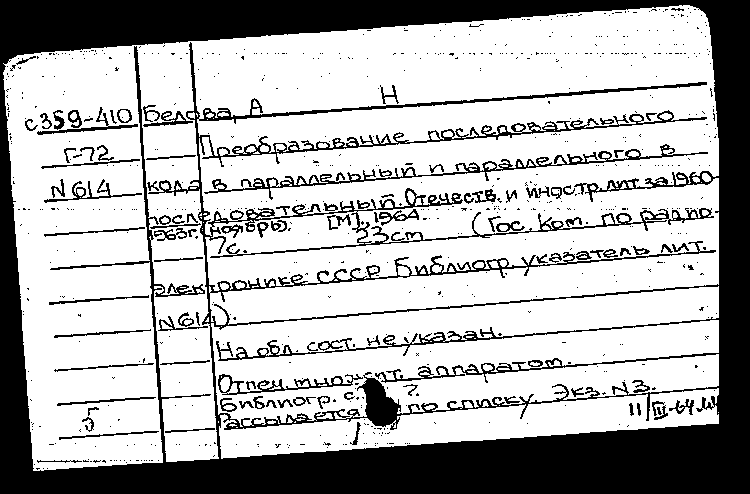 Н
с359-410 Белова, А
Г-72 Преобразование последовательного
N 614 кода в параллельный и параллельного в
последовательный. Отечеств. и иностр. лит. за 1960-
1963г. (ноябрь). [М]., 1964.
7с. 23cm (Гос. Ком. по радио-
электронике СССР Библиогр. указатель лит.
N 614).
На обл. сост. не указан.
Отпеч. множит. аппаратом.
Библиогр. с. 7.
5 Рассылается по списку. Экз. N 3.
11/III-64